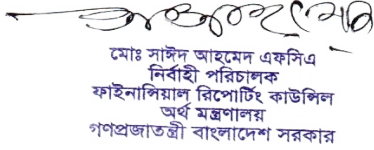 মোঃ সাঈদ আহমেদ এফসিএ
নির্বাহী পরিচালক
ফাইনান্সিয়াল রিপোর্টিং কাউন্সিল
অর্থ মন্ত্রণালয়
গণপ্রজাতন্ত্রী বাংলাদেশ সরকার